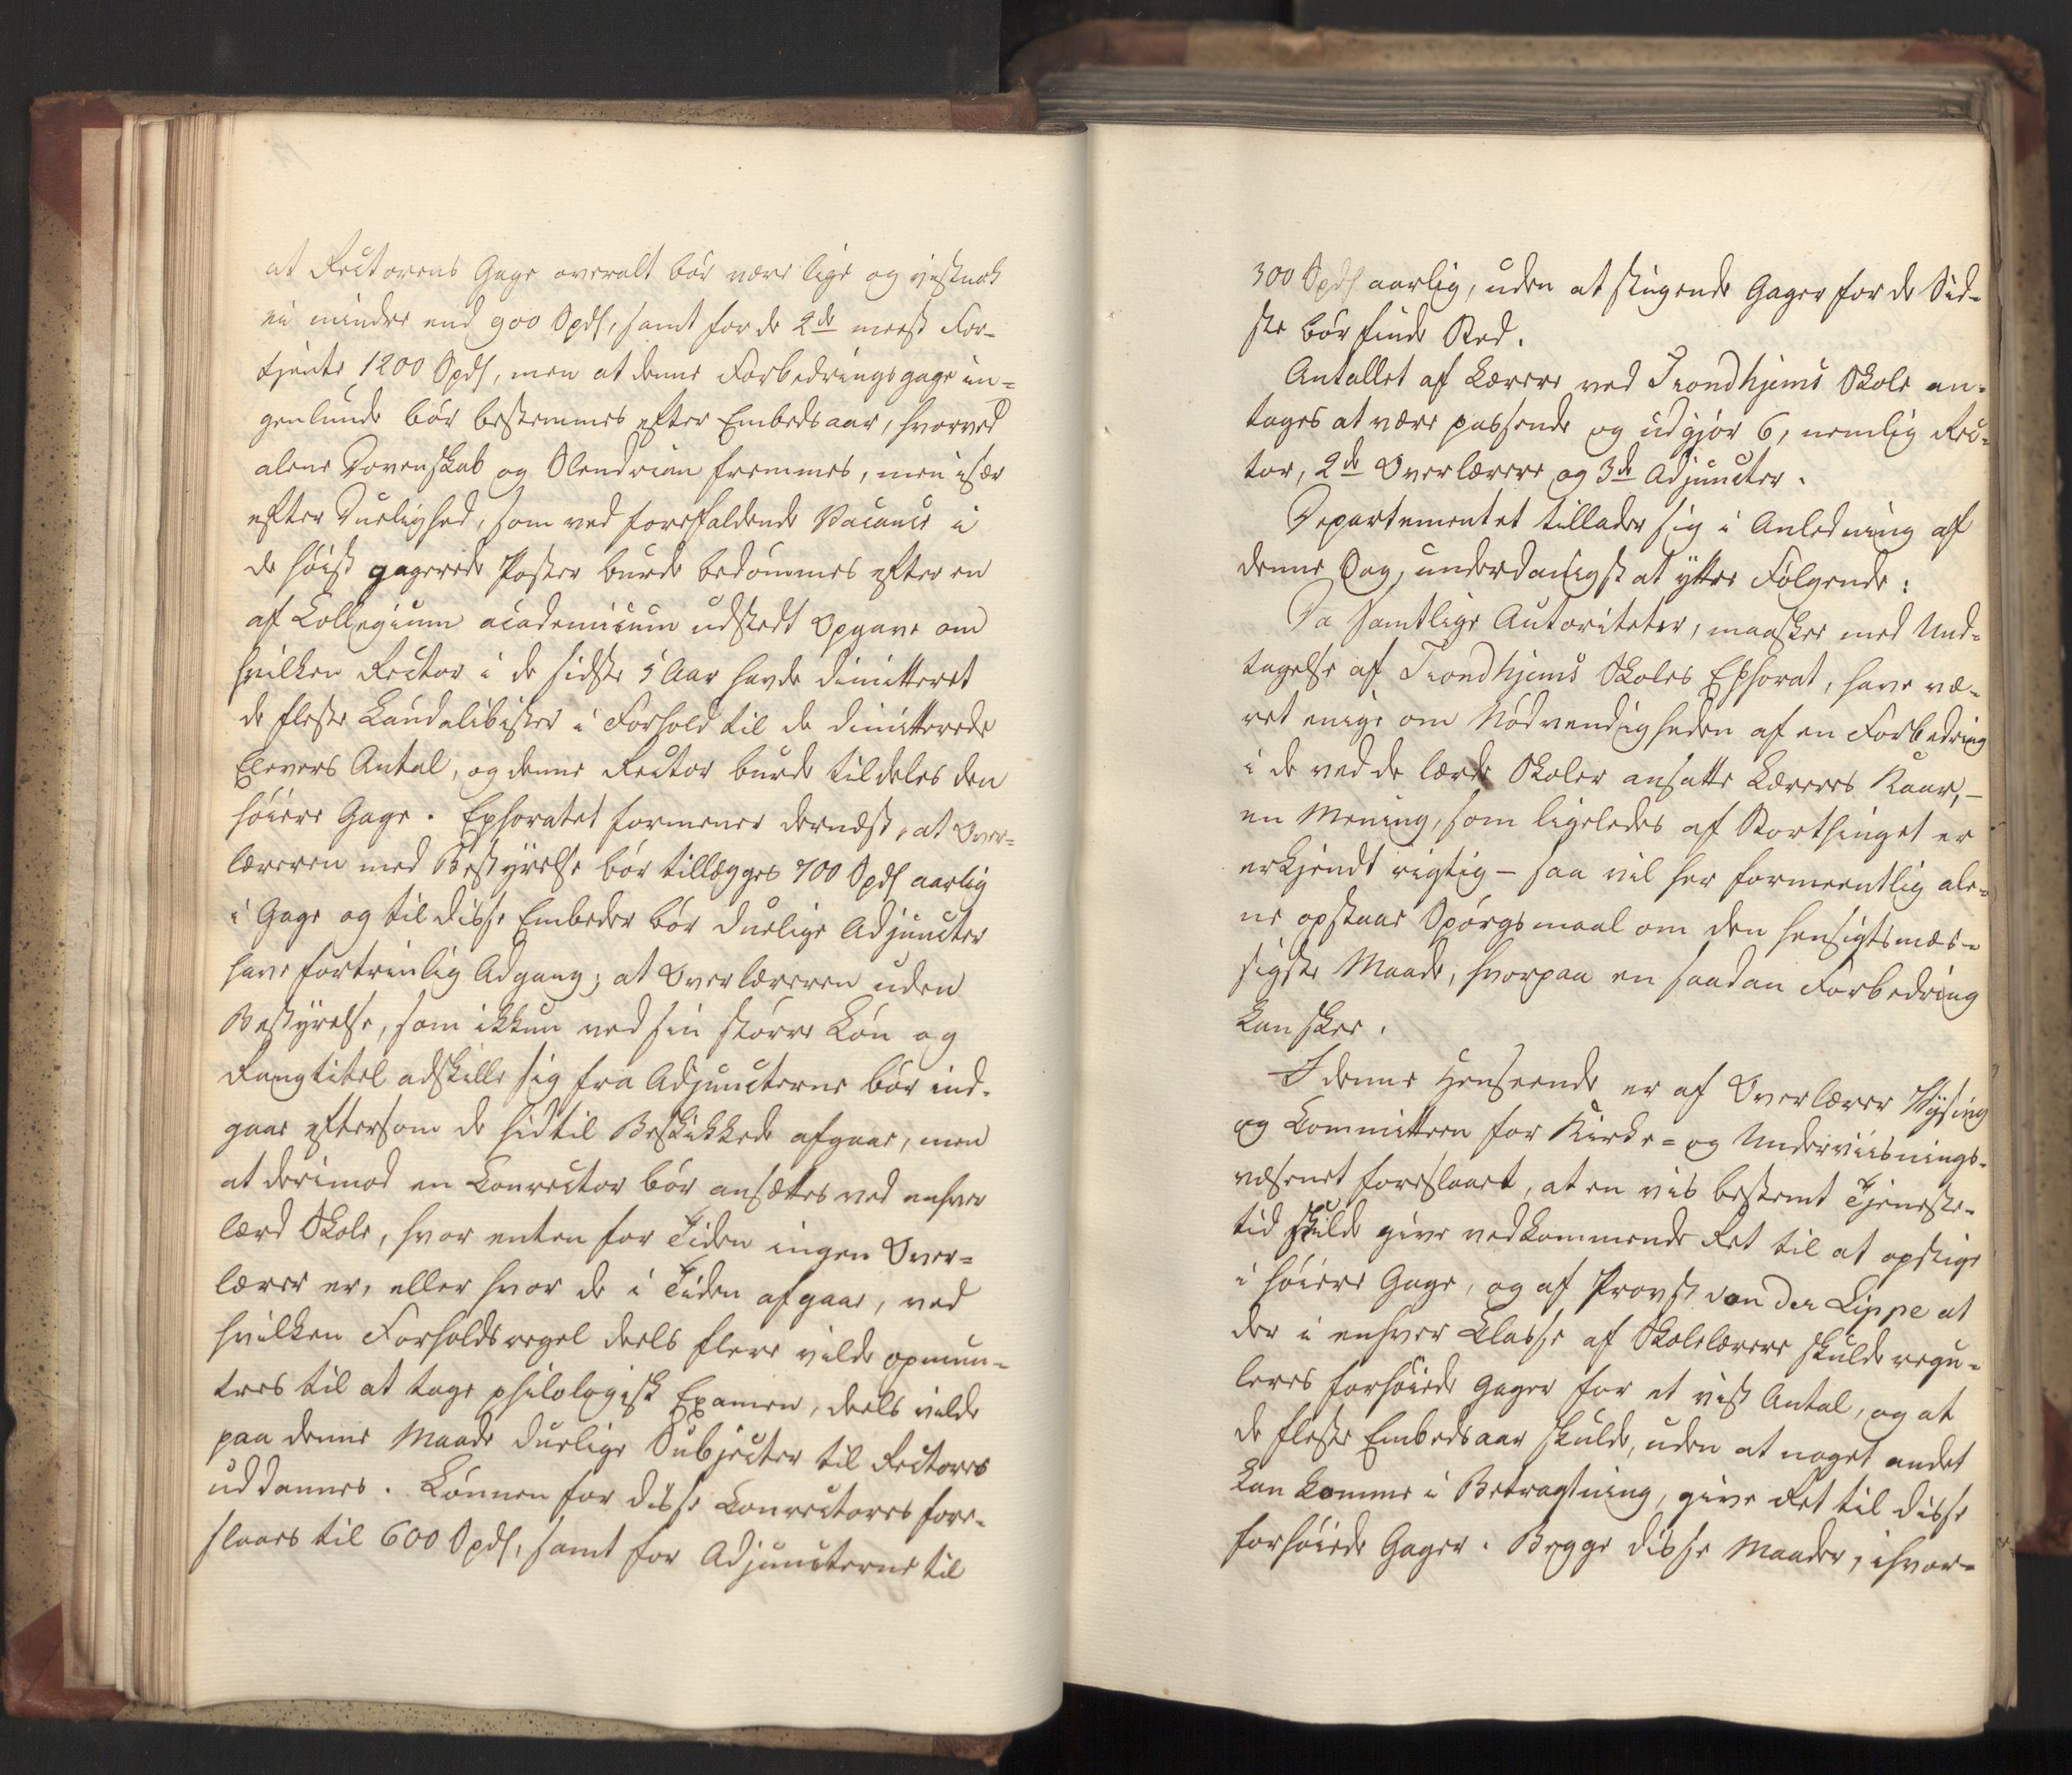 at Rectorens Gage overalt bør være lige og vistnok
ei mindre end 900 Spdl, samt for de 2de meest For-
tjente 1200 Spdl, men at denne Forbedringsgage in-
genlunde bør bestemmes efter Embedsaar, hvorved
alene Dovenskab og Slendrian fremmes, men især
efter Duelighed, som ved forefaldende Vacance i
de høist gagerede Poster burde bedømmes efter en
af Collegium academicum udstedt Opgave om
hvilken Rector i de sidste 5 Aar havde dimitteret
de fleste Laudabilister i Forhold til de dimitterede
Elevers Antal, og denne Rector burde tildeles den
høiere Gage. Ephoratet formener dernæst, at Over-
læreren med Bestyrelse bør tillægges 700 Spdl aarlig
i Gage og til disse Embeder bør duelige Adjuncter
have fortrinlig Adgang; at Overlæreren uden
Bestyrelse, som ikkun ved sin større Løn og
Rangtitel adskille sig fra Adjuncterne bør ind-
gaae eftersom de hidtil Beskikkede afgaae, men
at derimod en Conrector bør ansættes ved enhver
lærd Skole, hvor enten for Tiden ingen Over-
lærer er, eller hvor de i Tiden afgaae, ved
hvilken Forholdsregel deels flere vilde opmun-
tres til at tage philologisk Examen, deels vilde
paa denne Maade duelige Subjecter til Rectores
uddannes. Lønnen for disse Conrectores fore-
slaaes til 600 Spdl, samt for Adjuncterne til
300 Spdl aarlig, uden at stigende Gager for de Sid-
ste bør finde Sted.
Antallet af Lærere ved Trondhjems Skole an-
tages at være passende og udgjør 6, nemlig Rec-
tor, 2de Overlærere og 3de Adjuncter.
Departementet tillader sig i Anledning af
denne Sag, underdanigst at yttre Følgende:
Da samtlige Autoriteter, maaskee med Und-
tagelse af Trondhjems Skoles Ephorat, have væ-
ret enige om Nødvendigheden af en Forbedring
i de ved de lærde Skoler ansatte Læreres Kaar, –
en Mening, som ligeledes af Storthinget er
erkjendt rigtig – saa vil her formeentlig ale-
ne opstaae Spørgsmaal om den hensigtsmæs-
sigste Maade, hvorpaa en saadan Forbedring
kan skee.
I denne Henseende er af Overlærer
og Committeen for Kirke- og Underviisnings-
væsenet foreslaaet, at en vis bestemt Tjeneste-
tid skulde give vedkommende Ret til at opstige
i høiere Gage, og af Provst von der Lippe at
der i enhver Classe af Skolelærere skulde regu-
leres forhøiede Gager for et vist Antal, og at
de fleste Embedsaar skulde, uden at noget andet
kan komme i Betragtning, give Ret til disse
forhøiede Gager. Begge disse Maader, ihvor-